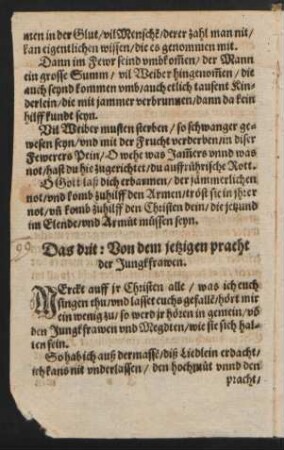 nten in der Glut/ vil Menschẽ/ derer zahl man nit/
kan eigentlichen wissen/ die es genommen mit.
Dann im Fewr seind vmbkom̃en/ der Mann
ein grosse Summ/ vil Weiber hingenom̃en/ die
auch seynd kommen vmb/ auch etlich tausent Kin-
derlein/ die mit jammer verbrunnen/ dann da kein
hilff kundt seyn.
Vil Weiber musten sterben/ so schwanger ge-
wesen seyn/ vnd mit der Frucht verderben/ in diser
Fewerers Pein/ O wehe was Jam̃ers vnnd was
not/ hast du hie zugerichtet/ du auffrührische Rott.
O Gott laß dich erbarmen/ der jämmerlichen
not/ vnd komb zuhilff den Armen/ tröst sie in jhrer
not/ vñ komb zuhilff den Christen dein/ die jetzund
im Elende/ vnd Armüt müssen seyn.
Das drit: Von dem jetzigen pracht
der Jungkfrawen.
MErckt auff jr Christen alle/ was ich euch
singen thu/ vnd lasset euchs gefallẽ/ hört mir
ein wenig zu/ so werd jr hören in gemein/ võ
den Jungkfrawen vnd Megdten/ wie sie sich hal-
ten fein.
So hab ich auß dermassẽ/ diß Liedlein erdacht/
ich kans nit vnderlassen/ den hochmüt vnnd den
pracht/